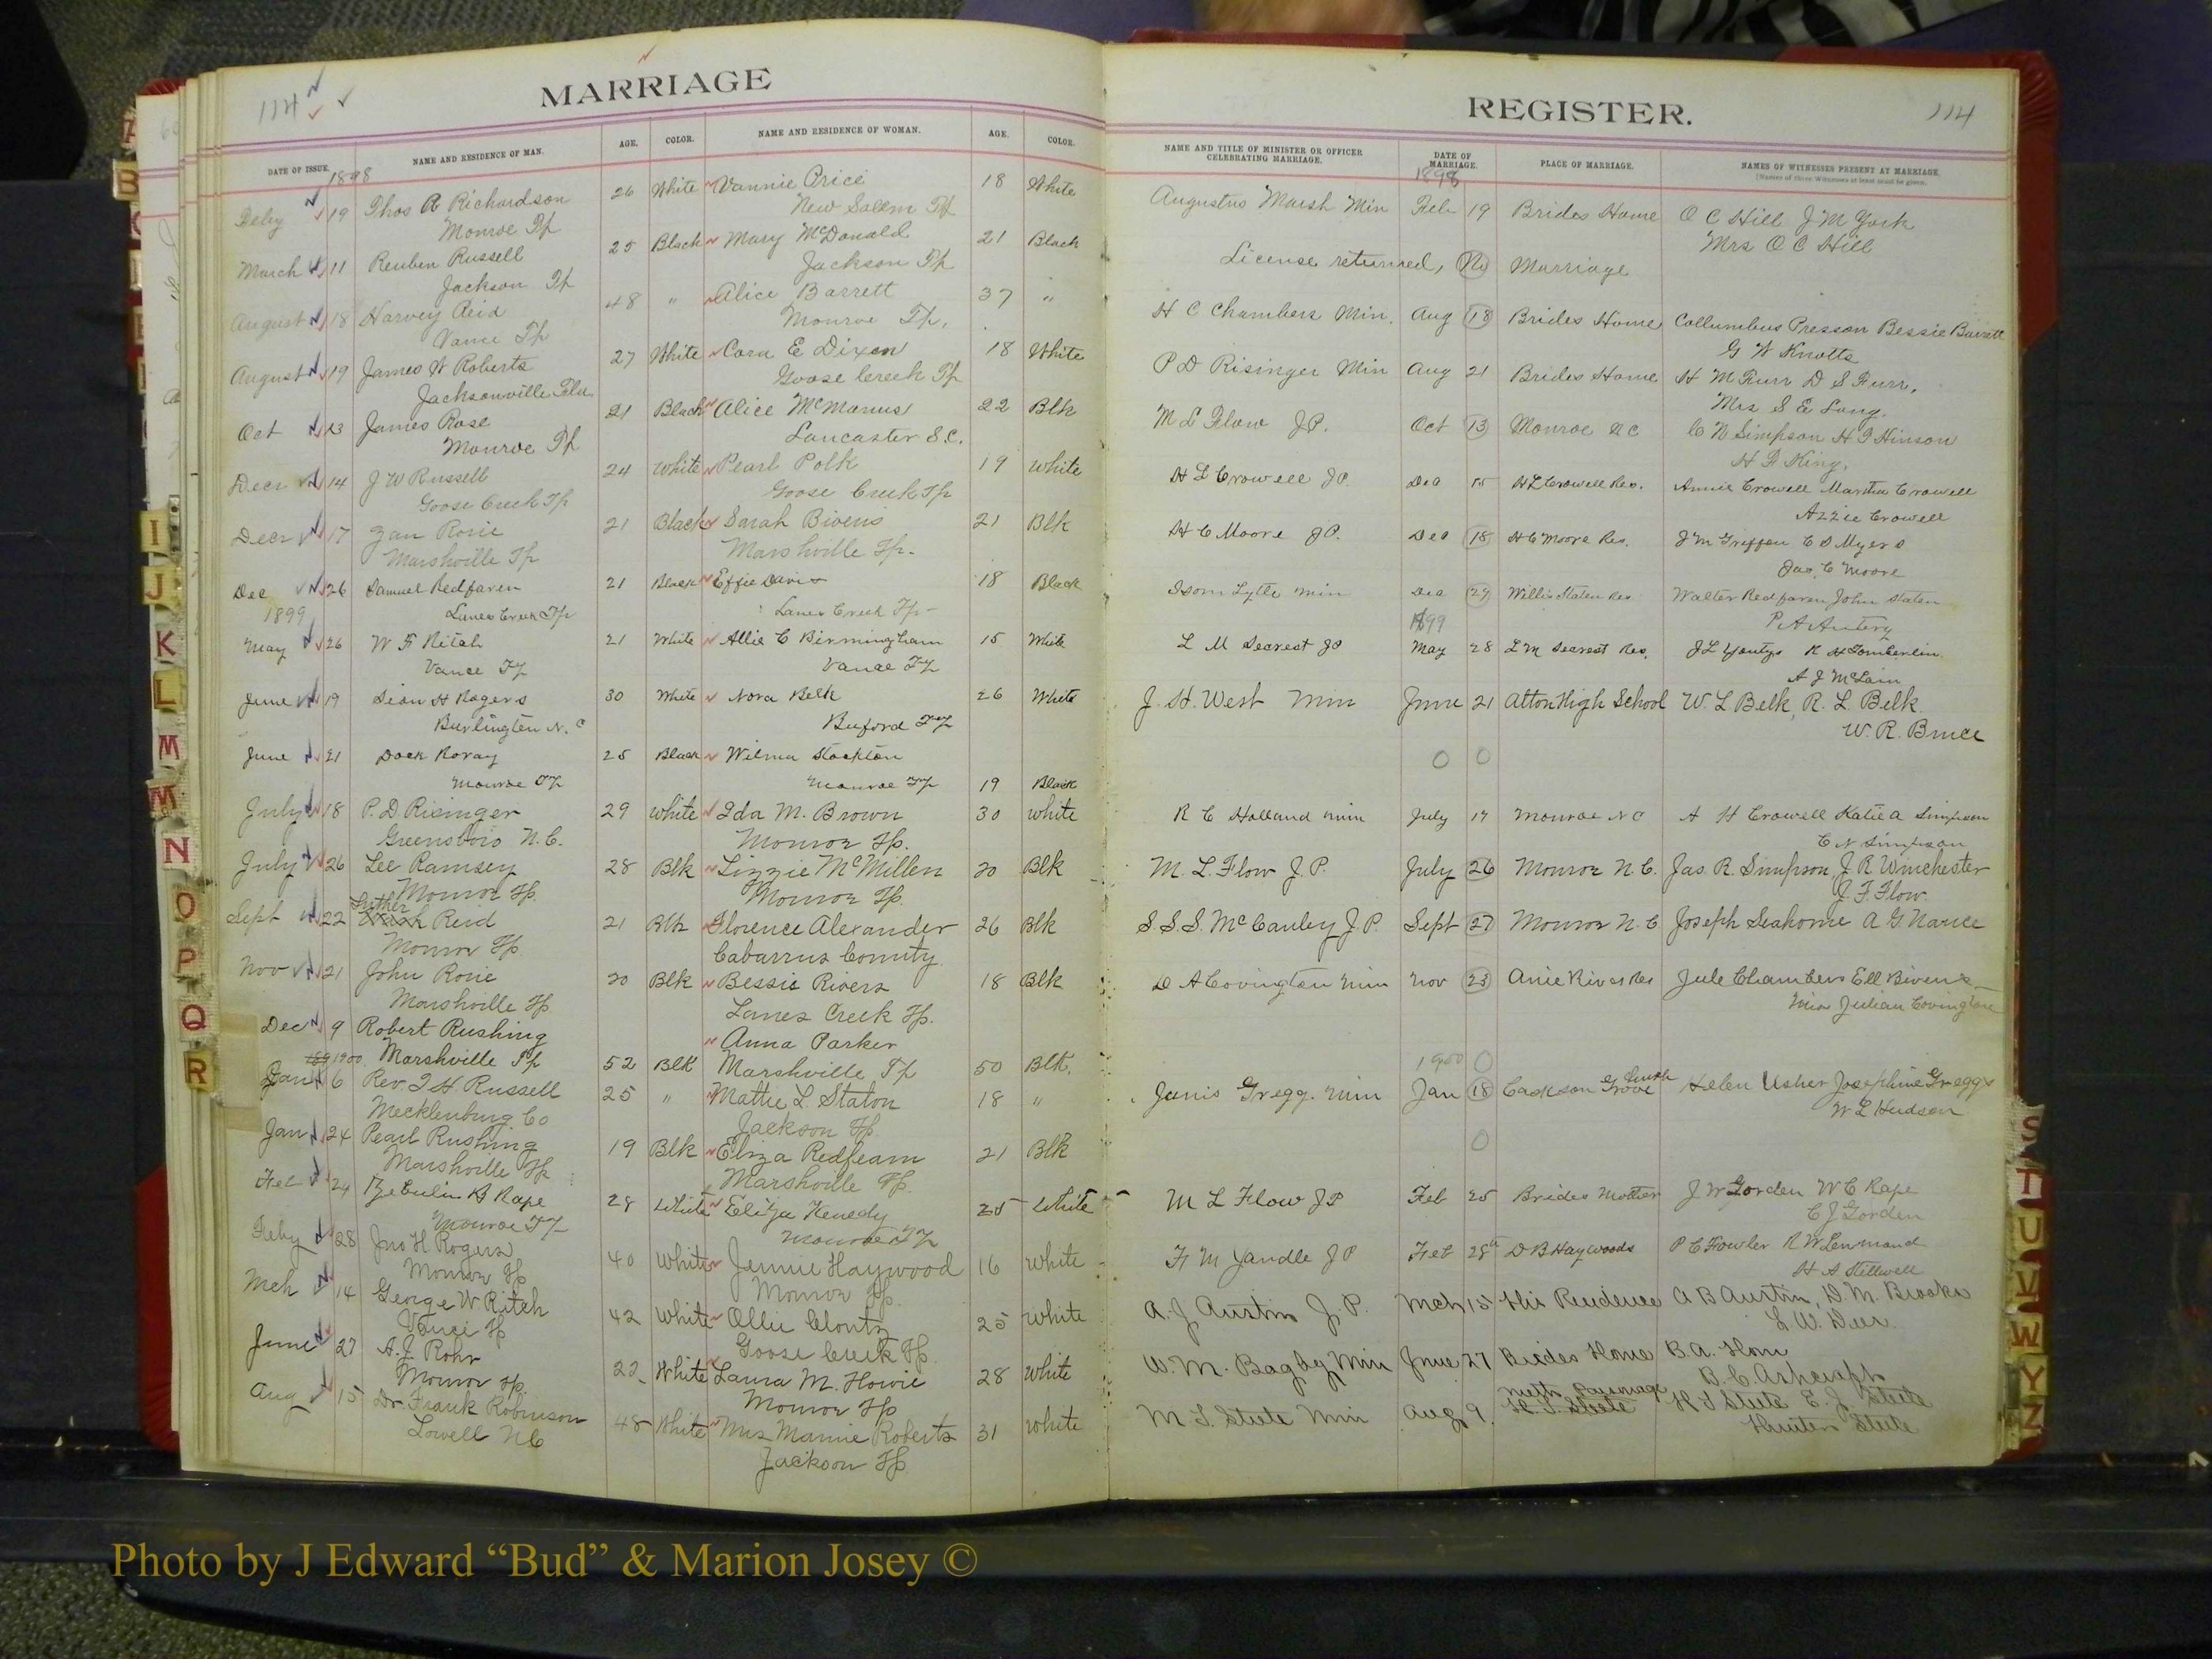 114
MARRIAGE
REGISTER.
114
DATE OF ISSUE. NAME AND RESIDENCE OF MAN. AGE. COLOR. NAME AND RESIDENCE OF WOMAN. AGE. COLOR. NAME AND TITLE OF MINISTER OR OFFICER CELEBRATING MARRIAGE. DATE OF MARRIAGE. PLACE OF MARRIAGE. NAMES OF WITNESSES PRESENT AT MARRIAGE.
[Names of three Witnesses at least must be given.
1898 1898
Feby 19 Thos R Richardson 26 White Vannie Price 18 White Augustus Marsh Min Feb 19 Brides Home O C Hill J M York
Monroe Tp New Salem Tp Mrs O C Hill
March 11 Reuben Russell 25 Black Mary McDonald 21 Black License returned, No Marriage
Jackson Tp Jackson Tp
August 18 Harvey Reid 48 " Alice Barrett 37 " H C Chambers Min. Aug 18 Brides Home Collumbus Presson Bessie Barrett
Vance Tp Monroe Tp. G W Knotts
August 19 James W Roberts 27 White Cora E Dixon 18 White P D Risinger Min Aug 21 Brides Home H M Furr D S Furr,
Jacksonville Fla Goose Creek Tp Mrs S E Long.
Oct 13 James Rose 21 Black Alice McManus 22 Blk M L Flow J.P. Oct 13 Monroe N C C N Simpson H I Hinson
Monroe Tp Lancaster S.C. H D King.
Decr 14 J W Russell 24 White Pearl Polk 19 White H L Crowell J.P. Dec 15 H L Crowell Res. Annie Crowell Martha Crowell
Goose Creek Tp Goose Creek Tp Azzie Crowell
Decr 17 Zan Rorie 21 Black Sarah Bivens 21 Blk H C Moore J.P. Dec 18 H C Moore Res. J M Griffen C D Myers
Marshville Tp Marshville Tp. Jas. C Moore
Dec 26 Samuel Redfaren 21 Black Effie Davis 18 Black Isom Lytle min Dec 29 Willis Staten Res Walter Redfaren John Staten
1899 Lanes Creek Tp Lanes Creek Tp 1899 P A Autery
May 26 W F Ritch 21 White Allie C Birmingham 15 White L M Secrest JP May 28 L M Secrest Res. J L Yontys R H Tomberlin
Vance Tp Vance Tp A J McLain
June 19 Sion H Rogers 30 White Nora Belk 26 White J. H. West Min June 21 Atton High School W. L Belk, R. L. Belk.
Burlington N. C Buford Tp W. R. Bruce
June 21 Dock Roray 25 Black Wilma Stockton 0 0
Monroe Tp Monroe Tp 19 Black
July 18 P. D Risinger 29 white Ida M. Brown 30 white R C Holland min July 19 Monroe N C A H Crowell Katie A Simpson
Greensboro N.C. Monroe Tp. C N Simpson
July 26 Lee Ramsey 28 Blk Lizzie McMillen 20 Blk M. L. Flow J. P. July 26 Monroe N. C. Jas. R. Simpson, J. R. Winchester
Monroe Tp. Monroe Tp. R. F. Flow.
Sept 22 Luther Reid 21 Blk Florence Alexander 26 Blk S. S. S. McCauley J. P. Sept 27 Monroe N. C Joseph Seahorne A G Nance
Monroe Tp. Cabarrus County
Nov 21 John Rorie 20 Blk Bessie Rivers 18 Blk D A Covington min Nov 23 Anie Rives Res Jule Chambers Ell Bivens
Marshville Tp. Lanes Creek Tp. Miss Julian Covington
Dec 9 Robert Rushing Anna Parker
1900 Marshville Tp 52 Blk Marshville Tp 50 Blk. 1900 0
Jan 6 Rev. I. H. Russell 25 " Mattie L. Staton 18 " Janis Gregg. min Jan 18 Jackson Grove Church Helen Usher Josephine Gregg
Mecklenburg Co Jackson Tp. W L Hudson
Jan 24 Pearl Rushing 19 Blk Eliza Redfearn 21 Blk 0
Marshville Tp Marshville Tp.
Feb 24 Zebulin B Rape 28 White Eliza Kenedy 25 White M L Flow JP Feb 25 Brides Mother J W Gorden W C Rape
Monroe Tp Monroe Tp C J Gorden
Feby 28 Jno H Rogers 40 White Jennie Haywood 16 White F M Yandle JP Feb 28 D B Haywoods P C Fowler R W Lenmond
Monroe Tp Monroe Tp. H A Stillwell
Mch 14 George W Ritch 42 White Ollie Clontz 25 White A. J. Austin J. P. Mch 15 His Residence A B Austin, D. M. Brooks
Vance Tp Goose Creek Tp. L. W. Deer.
June 27 A. J. Rohr 22 White Laura M. Howie 28 White W. M. Bagby Min June 27 Brides Home B. A. Horn
Monroe Tp. Monroe Tp B. C. Ashcraft
Aug 15 Dr. Frank Robinson 48 White Mrs Mamie Roberts 31 White M. T. Steele Min Aug 9. Meth. Parsonage R T Steele E. J. Steele
Lowell N C Jackson Tp Hunter Steele
A
B
I
J
K
L
M
M
N
O
P
Q
R
S
T
U
V
W
Y
Z
Photo by J Edward “Bud” & Marion Josey ©